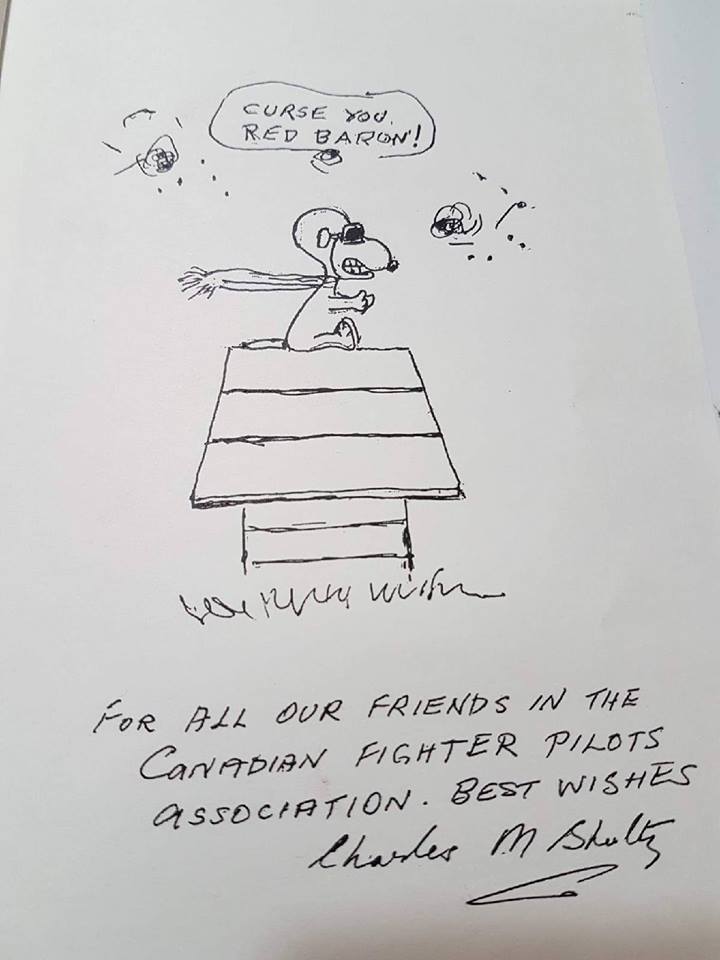 CURSE YOU,
RED BARON!
FOR ALL OUR FRIENDS IN THE
CANADIAN FIGHTER PILOTS
ASSOCIATION. BEST WISHES
Charles M Shultz